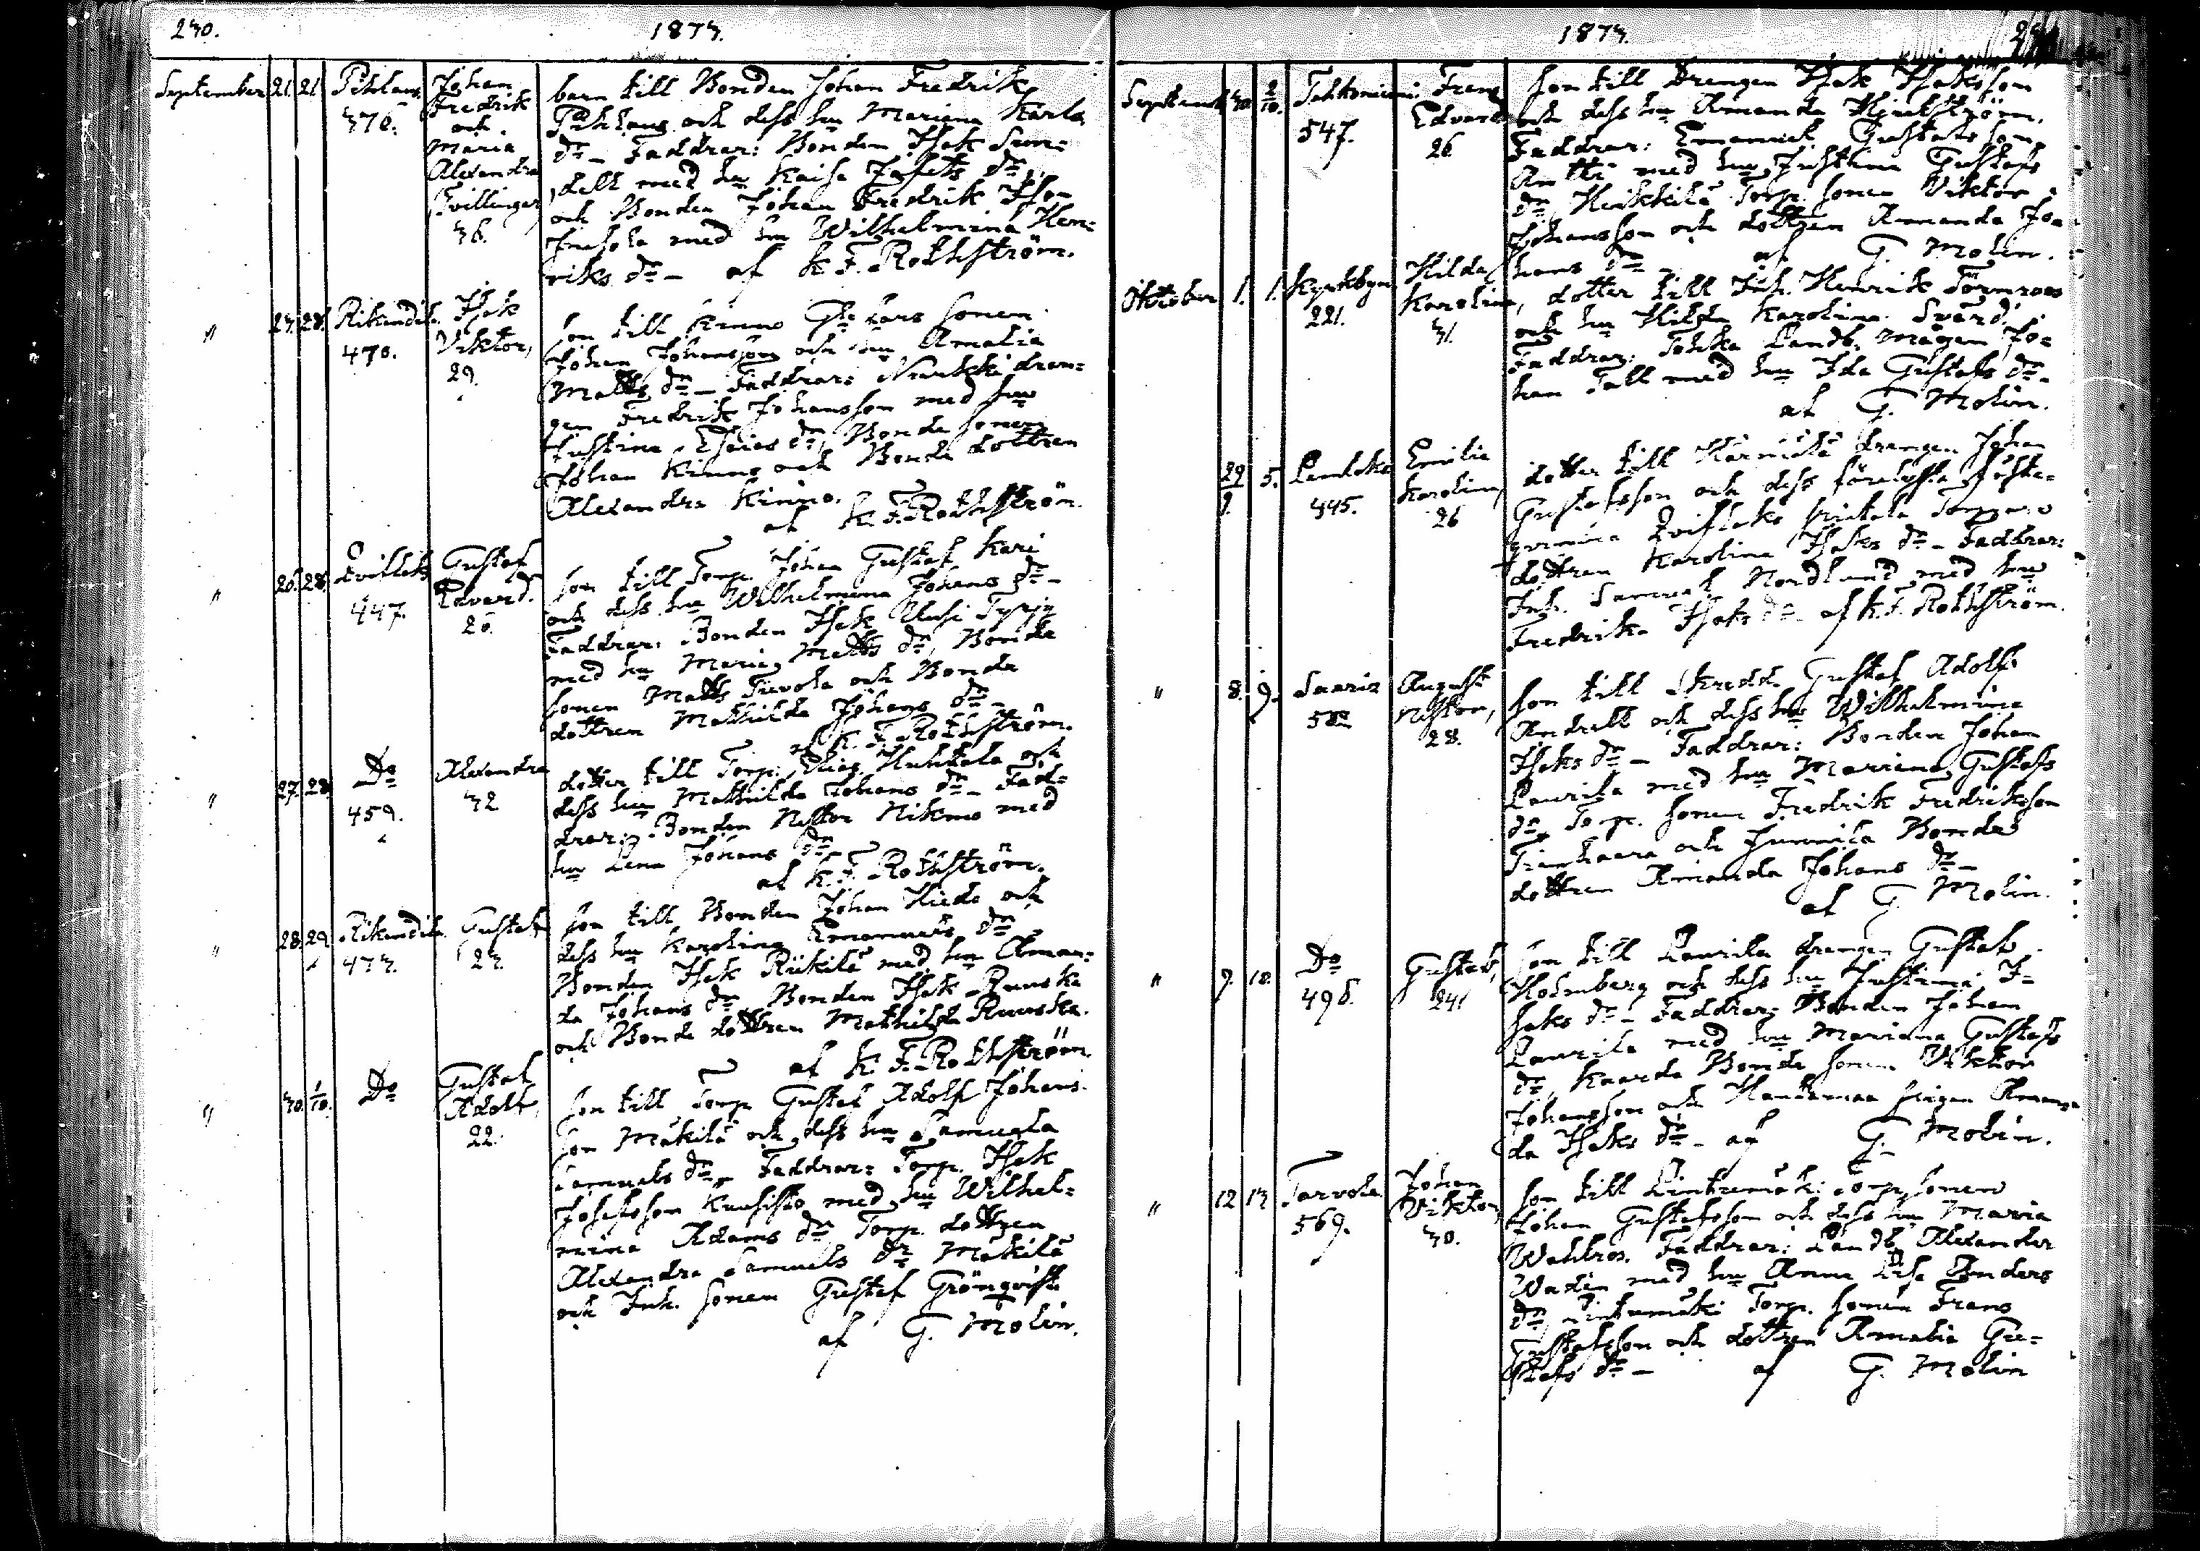 230.
1873.
September 21. 21
376.
Johan
Fredrik
och
Maria
Alexandra
Tvillingar
36.
barn till Bonden Johan Fredrik
och dess hu Mariana Karls
dr - Faddrar: Bonden Isak Sun=
dell med hu Kaisa dr,
och Bonden Johan Fredrik
med hu Wilhelmina Hen=
riks dr - af K. F. Rothström.
" 23. 28.
470.
Isak
Viktor,
29.
Son till Kinno sonen
Johan Johansson och hu Amalia
Matts dr - Faddrar: dren=
gen Fredrik Johansson med hu
Justina Esaias dr, Bonde sonen
Johan Kinno och Bonde dottren
Alexandra Kinno.
af K. F. Rothström.
" 26. 28.
447.
Gustaf
Edvard.
26.
Son till Torp. Johan Gustaf Kari
och dess hu Wilhelmina Johans dr -
Faddrar: Bonden Isak
med hu Maria Matts dr, Bonde
sonen Matts och Bonde
dottren Mathilda Johans dr -
af K. F. Rothström.
" 27. 28.
Do
459.
Alexandra
32
dotter till Torp. Elias Huhtala och
dess hu Mathilda Johans dr - Fad=
drar: Bonden Nestor Nikmo med
hu Lena Johans dr -
af K. F. Rothström.
" 28. 29.
Gustaf
23.
Son till Bonden Johan och
dess hu Karolina Emanuels dr
Bonden Isak med hu Aman=
da Johans dr Bonden Isak Ruuska
och Bonde dottren Mathilda Ruuska.
af K. F. Rothström.
" 30. 1/10.
Do
Gustaf
Adolf,
22.
Son till Torp. Gustaf Adolf Johans=
son Mäkilä och dess hu Samuela
Samuels dr - Faddrar: Torp. Isak
Josefsson med hu Wilhel=
mina Adams dr Torp. dottren
Alexandra Samuels dr Mäkilä
och Inh. sonen Gustaf Grönqvist
af G. Molin.
1873.
September 30. 2/10.
547.
Frans
Edvard
26.
Son till Drengen Isak Isaksson
och dess hu Amanda
Faddrar: Emanuel Gustafsson
Antti med hu Justina Gustafs
dr, Heikkilä Torp. sonen Viktor
Johansson och dottren Amanda Jo=
hans dr - af G. Molin.
Oktober 1. 1.
Kyrkbyn
221.
Hilda
Karolina,
31.
dotter till Inh. Henrik Törnroos
och hu Hilda Karolina Svärd.
Faddrar: Landb. mågen Jo=
han Tall med hu Ida Gustafs dr -
af G. Molin.
29/9. 5.
445.
Emilia
Karolina,
26
dotter till drengen Johan
Gustafsson och dess förelysta fäste=
qvinna
dottren Karolina Isaks dr - Faddrar:
Inh. Samuel Nordlund med hu
Fredrika Isaks dr - af K. F. Rothström.
" 8. 9.
Saaris
August
Nestor,
28.
Son till Skredd. Gustaf Adolf
Andell och dess hu Wilhelmina
Isaks dr - Faddrar: Bonden Johan
Laurila med hu Mariana Gustafs
dr, Torp. sonen Fredrik Fredriksson
och Bonde
dottren Amanda Johans dr -
af G. Molin.
" 9. 10.
Do
498.
Gustaf,
24.
Son till Laurila drengen Gustaf
Holmberg och dess hu Justina I=
saks dr - Faddrar: Bonden Johan
Laurila med hu Mariana Gustafs
dr, Kaarda Bonde sonen Viktor
Johansson och pigan Aman=
da Isaks dr - af G. Molin.
" 12 13.
Tarvola
569.
Johan
Viktor,
30.
Son till Torp. sonen
Johan Gustafsson och dess hu Maria
Wahlros. Faddrar: Landb. Alexander
Wadin med hu Anna Lisa Anders
dr, Torp. sonen Frans
Gustafsson och dottren Amalia Gu=
stafs dr - af G. Molin